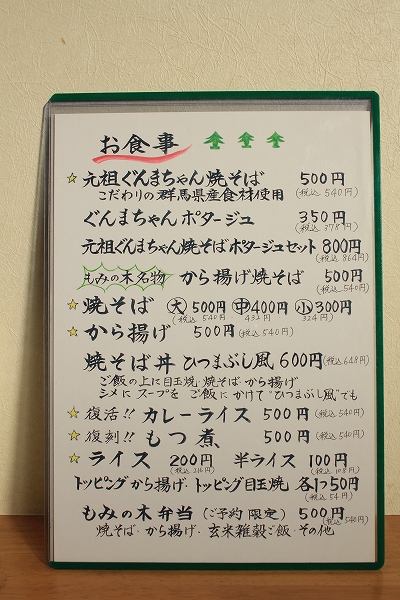 お食事
☆元祖ぐんまちゃん焼そば 500円(税込540円)
こだわりの群馬県産食材使用
ぐんまちゃんポタージュ 350円(税込378円)
元祖ぐんまちゃん焼そばポタージュセット 800円(税込864円)
もみの木名物 から揚げ焼そば 500円(税込540円)
☆焼そば 大500円(税込540円) 中400円432円 小300円324円
☆から揚げ 500円(税込540円)
焼そば丼 ひつまぶし風 600円(税込648円)
ご飯の上に目玉焼・焼そば・から揚げ
シメにスープをご飯にかけて"ひつまぶし風"でも
☆復活!! カレーライス 500円(税込540円)
☆復刻!! もつ煮 500円(税込540円)
☆ライス 200円(税込216円) 半ライス 100円(税込108円)
トッピングから揚げ・トッピング目玉焼 各1つ50円(税込54円)
もみの木弁当(ご予約限定) 500円(税込540円)
焼そば・から揚げ・玄米雑穀ご飯 その他